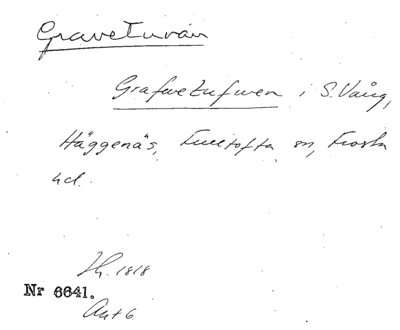 Gravetuvan
Grafwetufwen i S. Vång,
Häggenäs, Fulltofta sn, Frosta
hd.
Lh. 1818
Nr 6641.
Akt 6